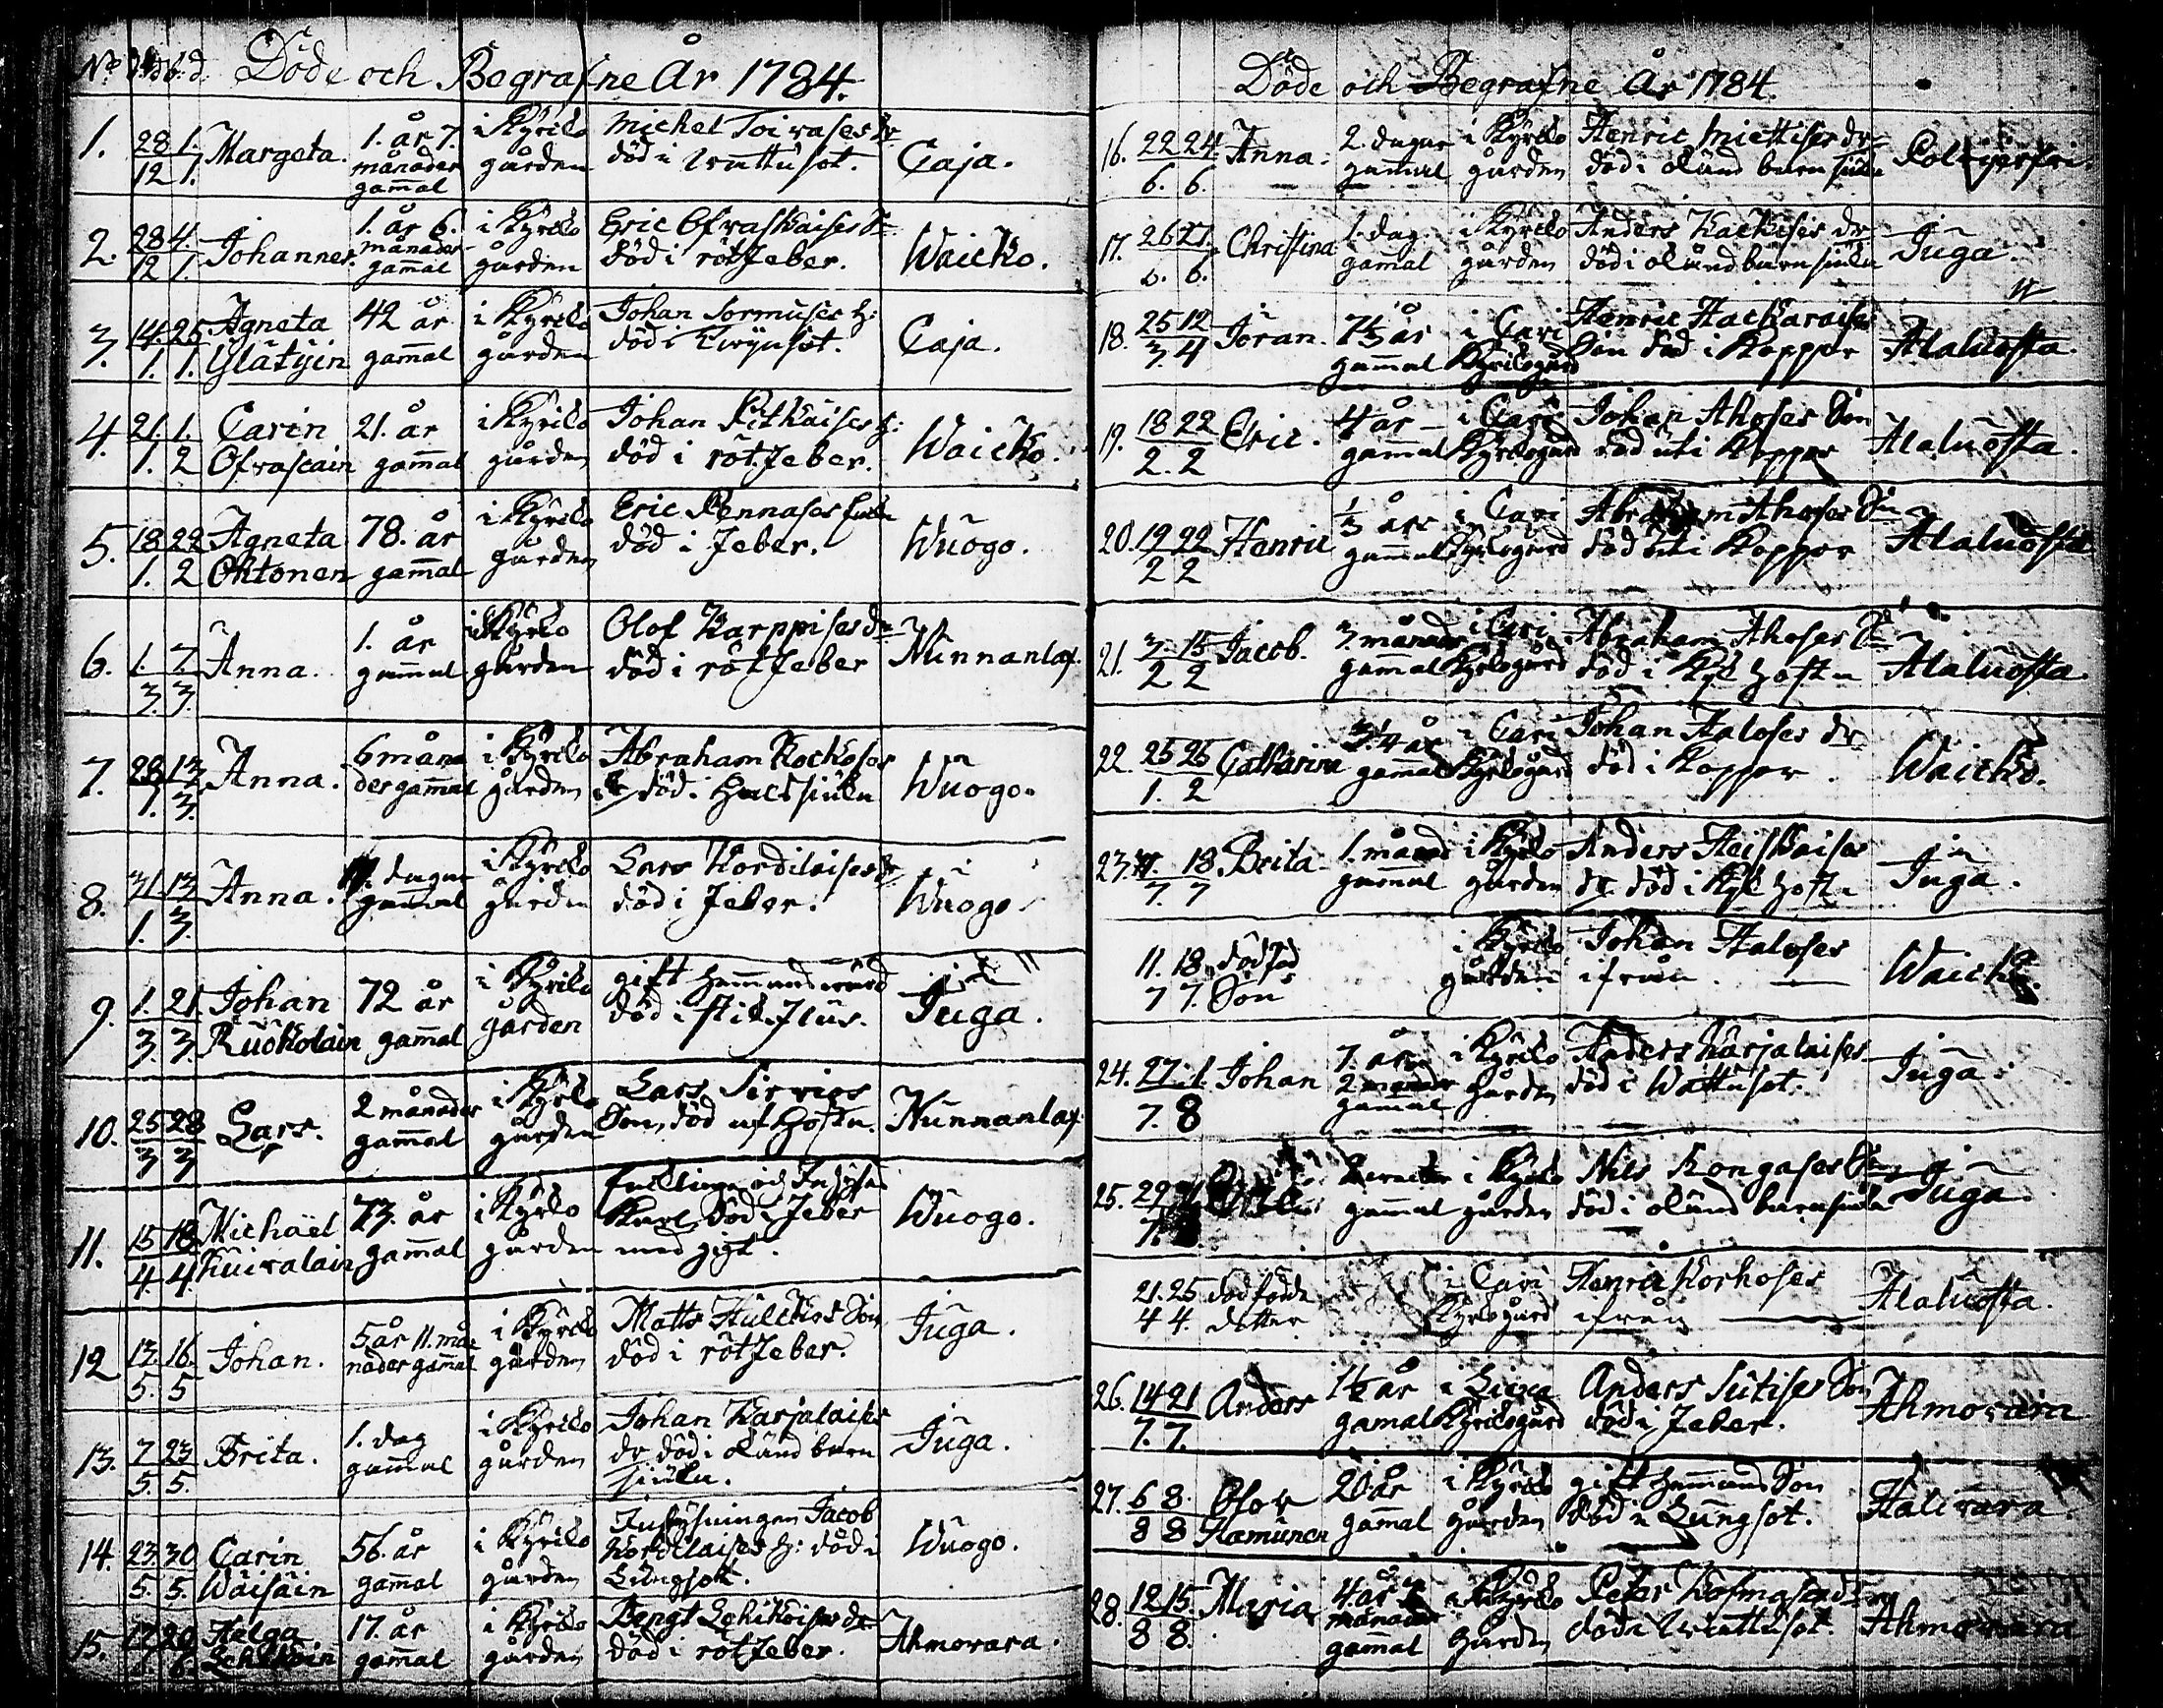 No död b.d. Döde och Begrafne År 1784.
1. 28/12 1./1. Margeta. 1. år 7. månader gam̄al i Kyrko gården Michel Toivases dr död i wattusot. Caja.
2. 28/12 4./1. Johannes. 1. år 6. månader gam̄al i Kyrko gården Eric Ofvaskaises Sn död i rötfeber. Waicko.
3. 14./1. 25/1. Agneta Glätyin 42 år gam̄al i Kyrko gården Johan Sormuses h: död i Twynsot. Caja.
4. 21./1. 1./2 Carin Ofvascain 21. år gam̄al i Kyrko gården Johan Pitkäises h: död i rötfeber. Waicko.
5. 18/1. 22/2 Agneta Oktonen 78. år gam̄al i Kyrko gården Eric Pennases död i feber. Wuogo.
6. 1./3. 7/3. Anna. 1. år gam̄al i Kyrko gården Olof Karppises dr död i rötfeber Nunnanlax.
7. 28/1. 13/3. Anna. 6 måna der gam̄al i Kyrko gården Abraham Kockoses dr död i halssiuka Wuogo.
8. 31./1. 13/3. Anna. dagar gam̄al i Kyrko gården Lars Kordilaises dr död i feber. Wuogo.
9. 1./3. 21./3. Johan Ruokolain 72 år gam̄al i Kyrko gården gift hem̄answard död i stik flus. Juga.
10. 25/3 28/3 Lars. 2 månader gam̄al i Kyrko gården Lars Sirvios Son, död af hosta. Nunnanlax.
11. 15/4. 18/4. Michaël Kuivalain 73. år gam̄al i Kyrko gården Enklingen och Inhyses Karl död i feber med gigt. Wuogo.
12 13./5. 16./5 Johan. 5 år 11. må nader gam̄al i Kyrko gården Matts Hulckos Son död i rötfeber. Juga.
13. 7/5 23/5. Brita. 1. dag gam̄al i Kyrko gården Johan Karjalaises dr död i okänd barn siuka. Juga.
14. 23./5. 30/5. Carin Wäisäin 56. år gam̄al i Kyrko gården Inhysningen Jacob Kordelaises h: död i Lungsot. Wuogo.
15. 17 20 Helga Lehikoin 17. år gam̄al i Kyrko gården Bengt Lehikoises dr död i rötfeber. Ahmovara.
Döde och Begrafne År 1784.
16. 22/6. 24/6. Anna. 2. dagar gam̄al i Kyrko gården Henric Miettises dr död i okänd barn siuka Polvijerfvi.
17. 26/6. 27/6. Christina 1. dag gam̄al i Kyrko gården Anders Kackises dr död i okänd barnsiuka Juga.
18. 25/3. 12/4 Jöran. 7½ år gam̄al i Cavi Kyrkogård Henric Hackaraises Son död i Koppor Alaluosta.
19. 18/2. 22/2 Eric. 4 år gam̄al i Cavi Kyrkogård Johan Ahoses Son död uti Koppor Alaluosta.
20. 19/2 22/2 Henric ⅓ års gam̄al i Cavi Kyrkogård Abraham Ahoses Sn död uti Koppor Alaluosta
21. 3./2 15/2 Jacob. 3. månader gamal i Cavi Kyrkogård Abraham Ahoses Sn död i Kyk hosta Alaluosta.
22. 25/1. 25/2 Catharina 3¼ år gam̄al i Cavi Kyrkogård Johan Haloses dr död i Koppor. Waicko.
23. 11./7. 18/7 Brita 1. månad gam̄al i Kyrko gården Anders Heiskaises dr död i Kyk hosta Juga.
11./7 18/7. dödfod Son i Kyrko gården Johan Haloses ifrån Waicko.
24. 27./7. 1./8 Johan 7. år 2 månader gam̄al i Kyrko gården Anders Karjalaises död i Wattusot. Juga.
25. 29 gam̄al i Kyrko gården Nils Kongases Son död i okänd barnsiuka Juga
21./4 25/4. dödfödde dotter i Cavi Kyrkogård Henric Korhoses ifrån Alaluosta.
26. 14/7. 21/7. Anders 1½ år gamal i Liexa Kyrkogård Anders Sutises Son död i feber. Ahmovara
27. 6/8 8./8 Olov Hamunen 20. år gam̄al i Kyrko gården gift hem̄ans Son död i Lungsot. Halivara.
28. 12/8 15./8. Maria 4. år månader gam̄al i Kyrko gården Peter Hofmqsends död i wattusot. Ahmovara